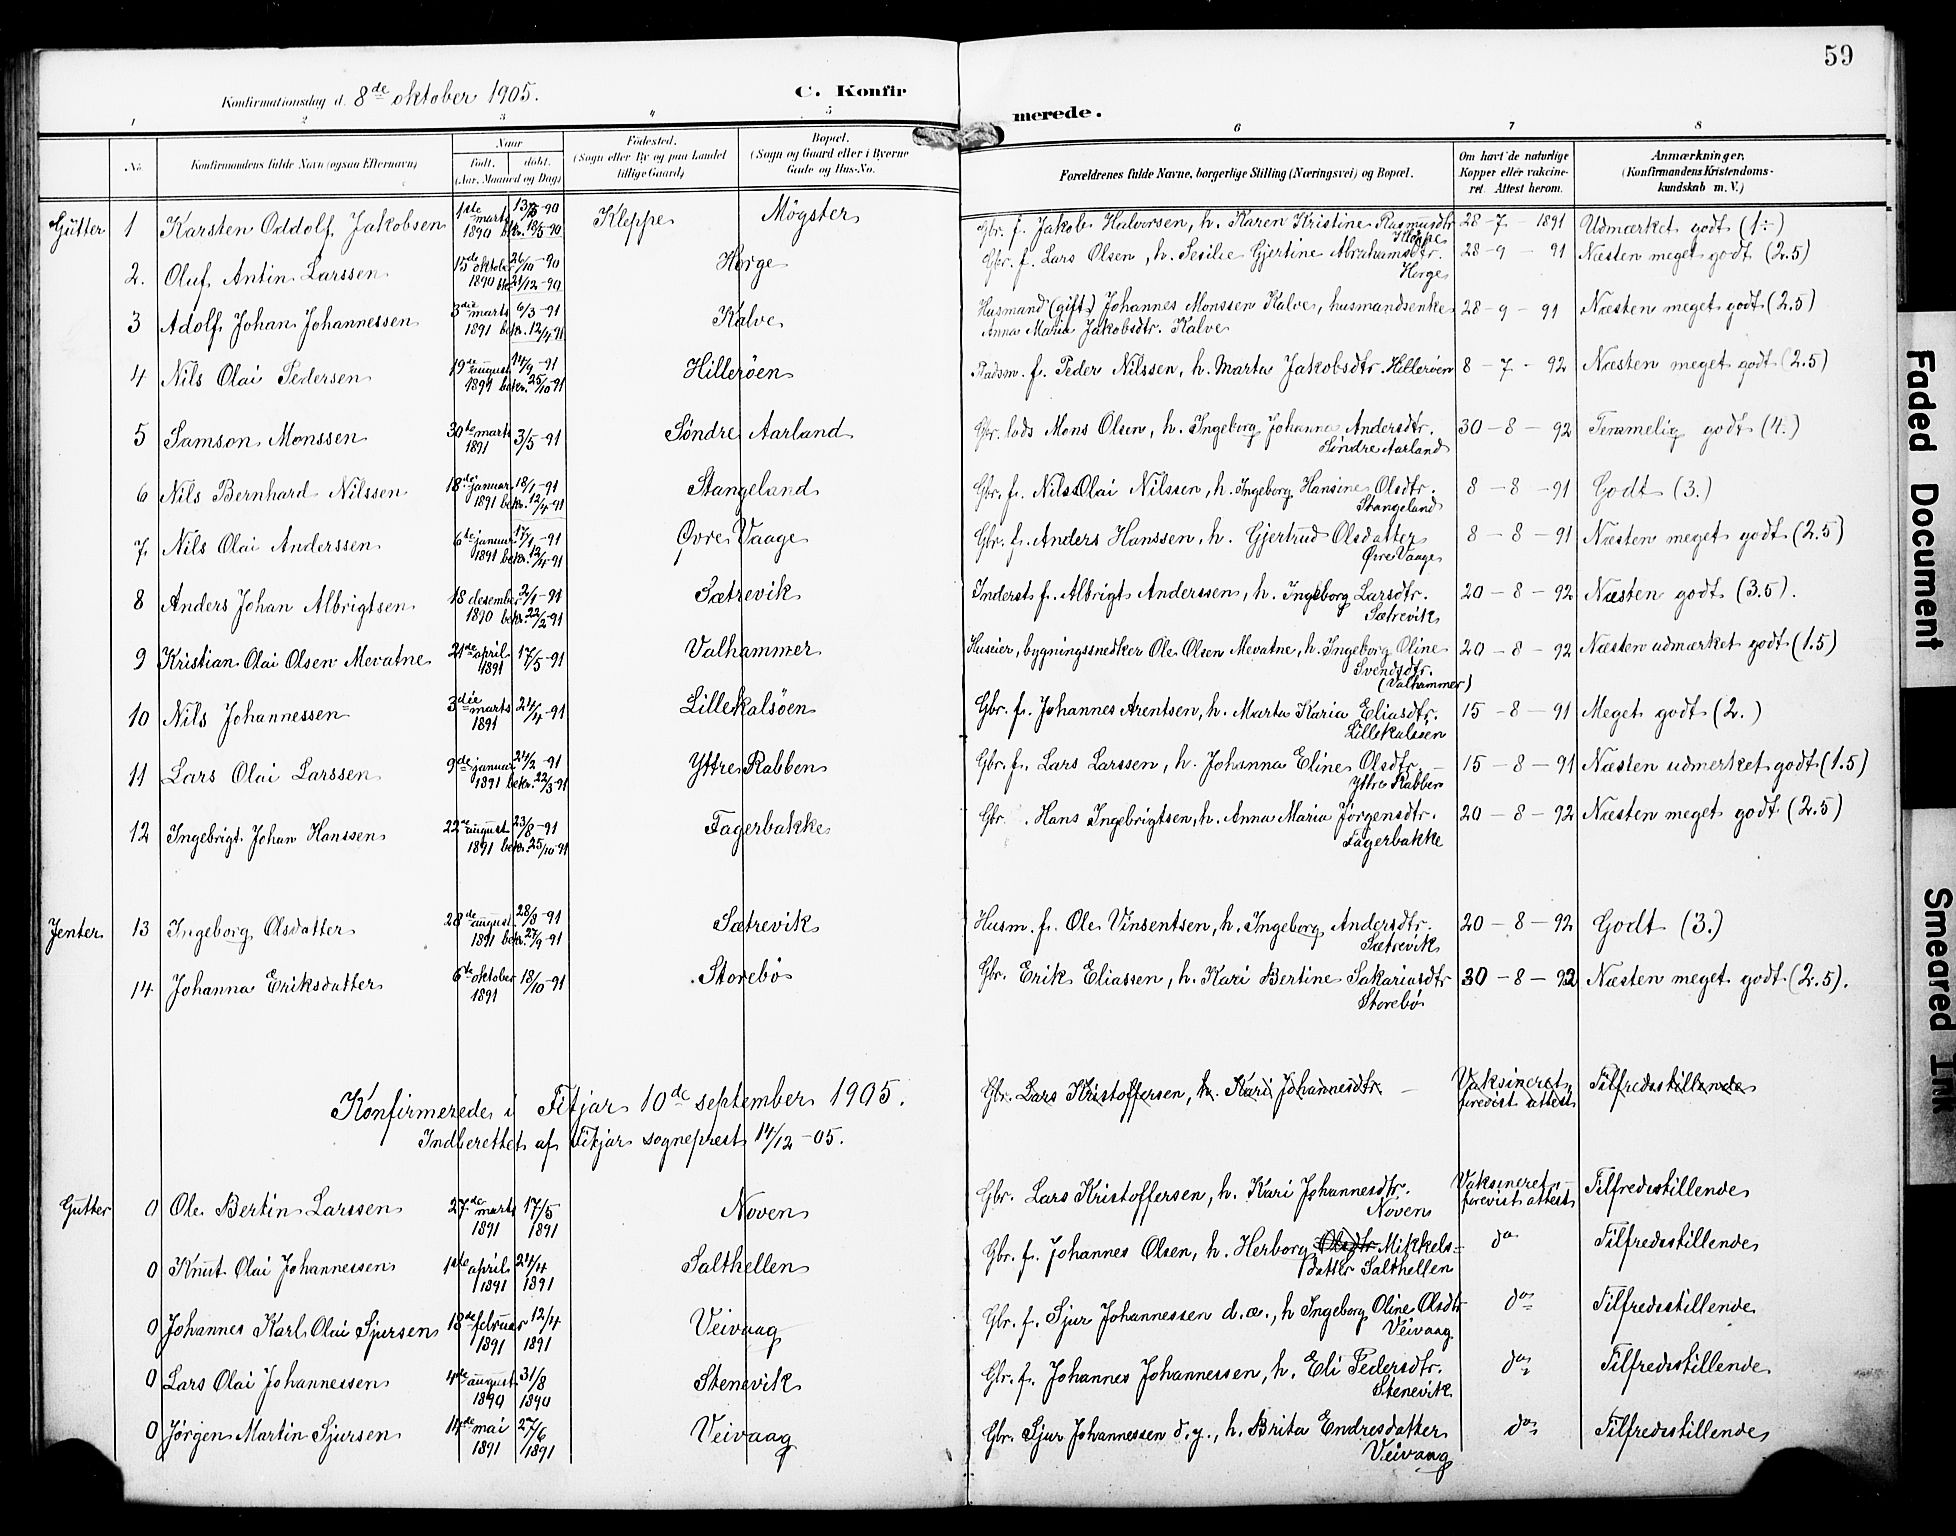 59
Konfirmationsdag d. 8de oktober 1905. C. Konfir merede.
1 2 3 4 5 6 7 8
No. Konfirmandens fulde Navn (ogsaa Efternavn) Naar født, døbt. (Aar, Maaned og Dag) Fødested. (Sogn eller By og paa Landet tillige Gaard) Bopæl. (Sogn og Gaard eller i Byerne Gade og Hus-No. Forældrenes fulde Navne, borgerlige Stilling (Næringsvei) og Bopæl. Om havt de naturlige Kopper eller vakcineret. Attest herom. Anmærkninger. (Konfirmandens Kristendomskundskab m. V.)
Gutter 1 Karsten Oddolf Jakobsen 1ste marts 1890 bekr. 18/5-90 Kleppe Møgster Gbr. f. Jakob Halvorsen, h. Karen Kristine Rasmusdtr Kleppe 28-7-1891 Udmærket godt (1.)
2. Oluf Antin Larssen 15de oktober 1890 26/10-90 bkr. 21/12-90 Horge Gbr. f. Lars Olsen, h. Sesilie Gjertine Abrahamsdtr. Horge 28-9-91 Næsten meget godt (2.5)
3 Adolf Johan Johannessen 3die marts 1891 6/3-91 bekr. 12/4 91 Kalve Husmand (gift) Johannes Monssen Kalve, husmandsenke Anna Maria Jakobsdtr. Kalve 28-9-91 Næsten meget godt (2.5)
4 Nils Olai Pedersen 19de august 1891 14/9-91 bekr. 25/10-91 Hillerøen Pladsm. f. Peder Nilssen, h. Marta Jakobsdtr. Hillerøen 8-7-92 Næsten meget godt (2.5)
5 Samson Monssen 30de marts 1891 3/5-91 Søndre Aarland Gbr. lods Mons Olsen, h. Ingeborg Johanna Andersdtr. Søndre Aarland 30-8-92 Temmelig godt (4.)
6 Nils Bernhard Nilssen 18de januar 1891 18/1-91 bekr. 12/4-91 Stangeland Gbr. f. Nils Olai Nilssen, h. Ingeborg Hansine Olsdtr. Stangeland 8-8-91 Godt (3.)
7. Nils Olai Anderssen 6te januar 1891 17/1-91 bekr. 12/4-91 Øvre Vaage Gbr. f. Anders Hanssen, h. Gjertrud Olsdatter Øvre Vaage 8-8-91 Næsten meget godt (2.5)
8 Anders Johan Albrigtsen 18 desember 1890 2/1-91 bekr. 22/2-91 Sætrevik Inderst f. Albrigt Anderssen, h. Ingeborg Larsdtr. Sætrevik 20-8-92 Næsten godt (3.5).
9 Kristian Olai Olsen Mevatne 21de april 1891 17/5-91 Valhammer Huseier, bygningssnedker Ole Olsen Mevatne, h. Ingeborg Oline Svendsdtr. (Valhammer) 20-8-92 Næsten udmærket godt (1.5)
10 Nils Johannessen 3die marts 1891 24/4-91 Lillekalsøen Gbr. f. Johannes Arentsen, h. Marta Karia Eliasdtr. Lillekalsøen 15-8-91 Meget godt (2.)
11 Lars Olai Larssen 9de januar 1891 21/2-91 bekr. 22/3-91 Yttre Rabben Gbr. f. Lars Larssen, h. Johanna Eline Olsdtr. Yttre Rabben 15-8-91 Næsten udmerket godt (1.5)
12 Ingebrigt Johan Hanssen 22de august 1891 23/8-91 bekr. 25/10-91 Fagerbakke Gbr. Hans Ingebrigtsen, h. Anna Maria Jørgensdtr. Fagerbakke 20-8-92 Næsten meget godt (2.5)
Jenter 13 Ingeborg Olsdatter 28de august 1891 28/8-91 bekr. 27/9-91 Sætrevik Husm. f. Ole Vinsentsen, h. Ingeborg Andersdtr. Sætrevik 20-8-92 Godt (3.)
14 Johanna Eriksdatter 6te oktober 1891 18/10-91 Storebø Gbr. Erik Eliassen, h. Kari Bertine Sakariasdtr Storebø 30-8-92 Næsten meget godt (2.5).
Konfirmerede i Fitjar 10de september 1905. Gbr. Lars Kristoffersen, h. Kari Johannesdtr. Vaksineret, forevist attest Tilfredsstillende
Indberettet af Fitjar sogneprest 14/12-05.
Gutter 0 Ole Bertin Larssen 27de marts 1891 17/5 1891 Noven Gbr. Lars Kristoffersen, h. Kari Johannesdtr. Noven Vaksineret, forevist attest Tilfredsstillende
0 Knut Olai Johannessen 1ste april 1891 24/4 1891 Salthellen Gbr. f. Johannes Olsen, h. Herborg Olsdtr Mikkelsdatter Salthellen do Tilfredsstillende
0 Johannes Karl Olai Sjursen 18de februar 1891 12/4 1891 Veivaag Gbr. f. Sjur Johannessen d.æ., h Ingeborg Oline Olsdtr Veivaag do Tilfredsstillende
0 Lars Olai Johannessen 4de august 1890 31/8 1890 Stenevik Gbr. f. Johannes Johannessen, h. Eli Pedersdtr. Stenevik do Tilfredsstillende
0 Jørgen Martin Sjursen 14de mai 1891 27/6 1891 Veivaag Gbr. Sjur Johannessen d.y., h. Brita Endresdatter Veivaag do Tilfredsstillende
Faded Document
Smeared Ink